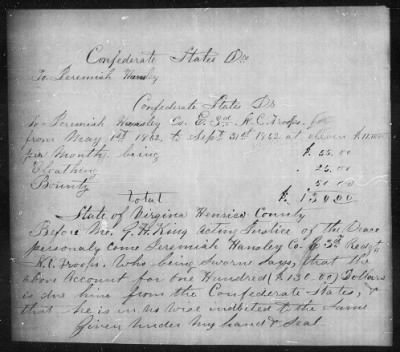 Confederate States Dr
To Jeremiah Hensley
Confederate States Dr
To Jeremiah Hensley Co. E. 3rd N.C. Troops. for
from May 1st 1862, to Sept 21st 1862 at eleven $11.00
per Month being $ 55.00
Cloathing 25.00
Bounty 50.00
Total $. 130.00
State of Virginia Henrico County
Before me. J.H. King acting Justice of the Peace
personaly come Jeremiah Hansley Co. E 3d Regt
N.C. Troops. Who being Sworne Says, that the
above Account for one Hundred ($130.00) Dollars
is due him from the Confederate States, &
that he is in no wise indebted to the Same
Given under my hand & Seal